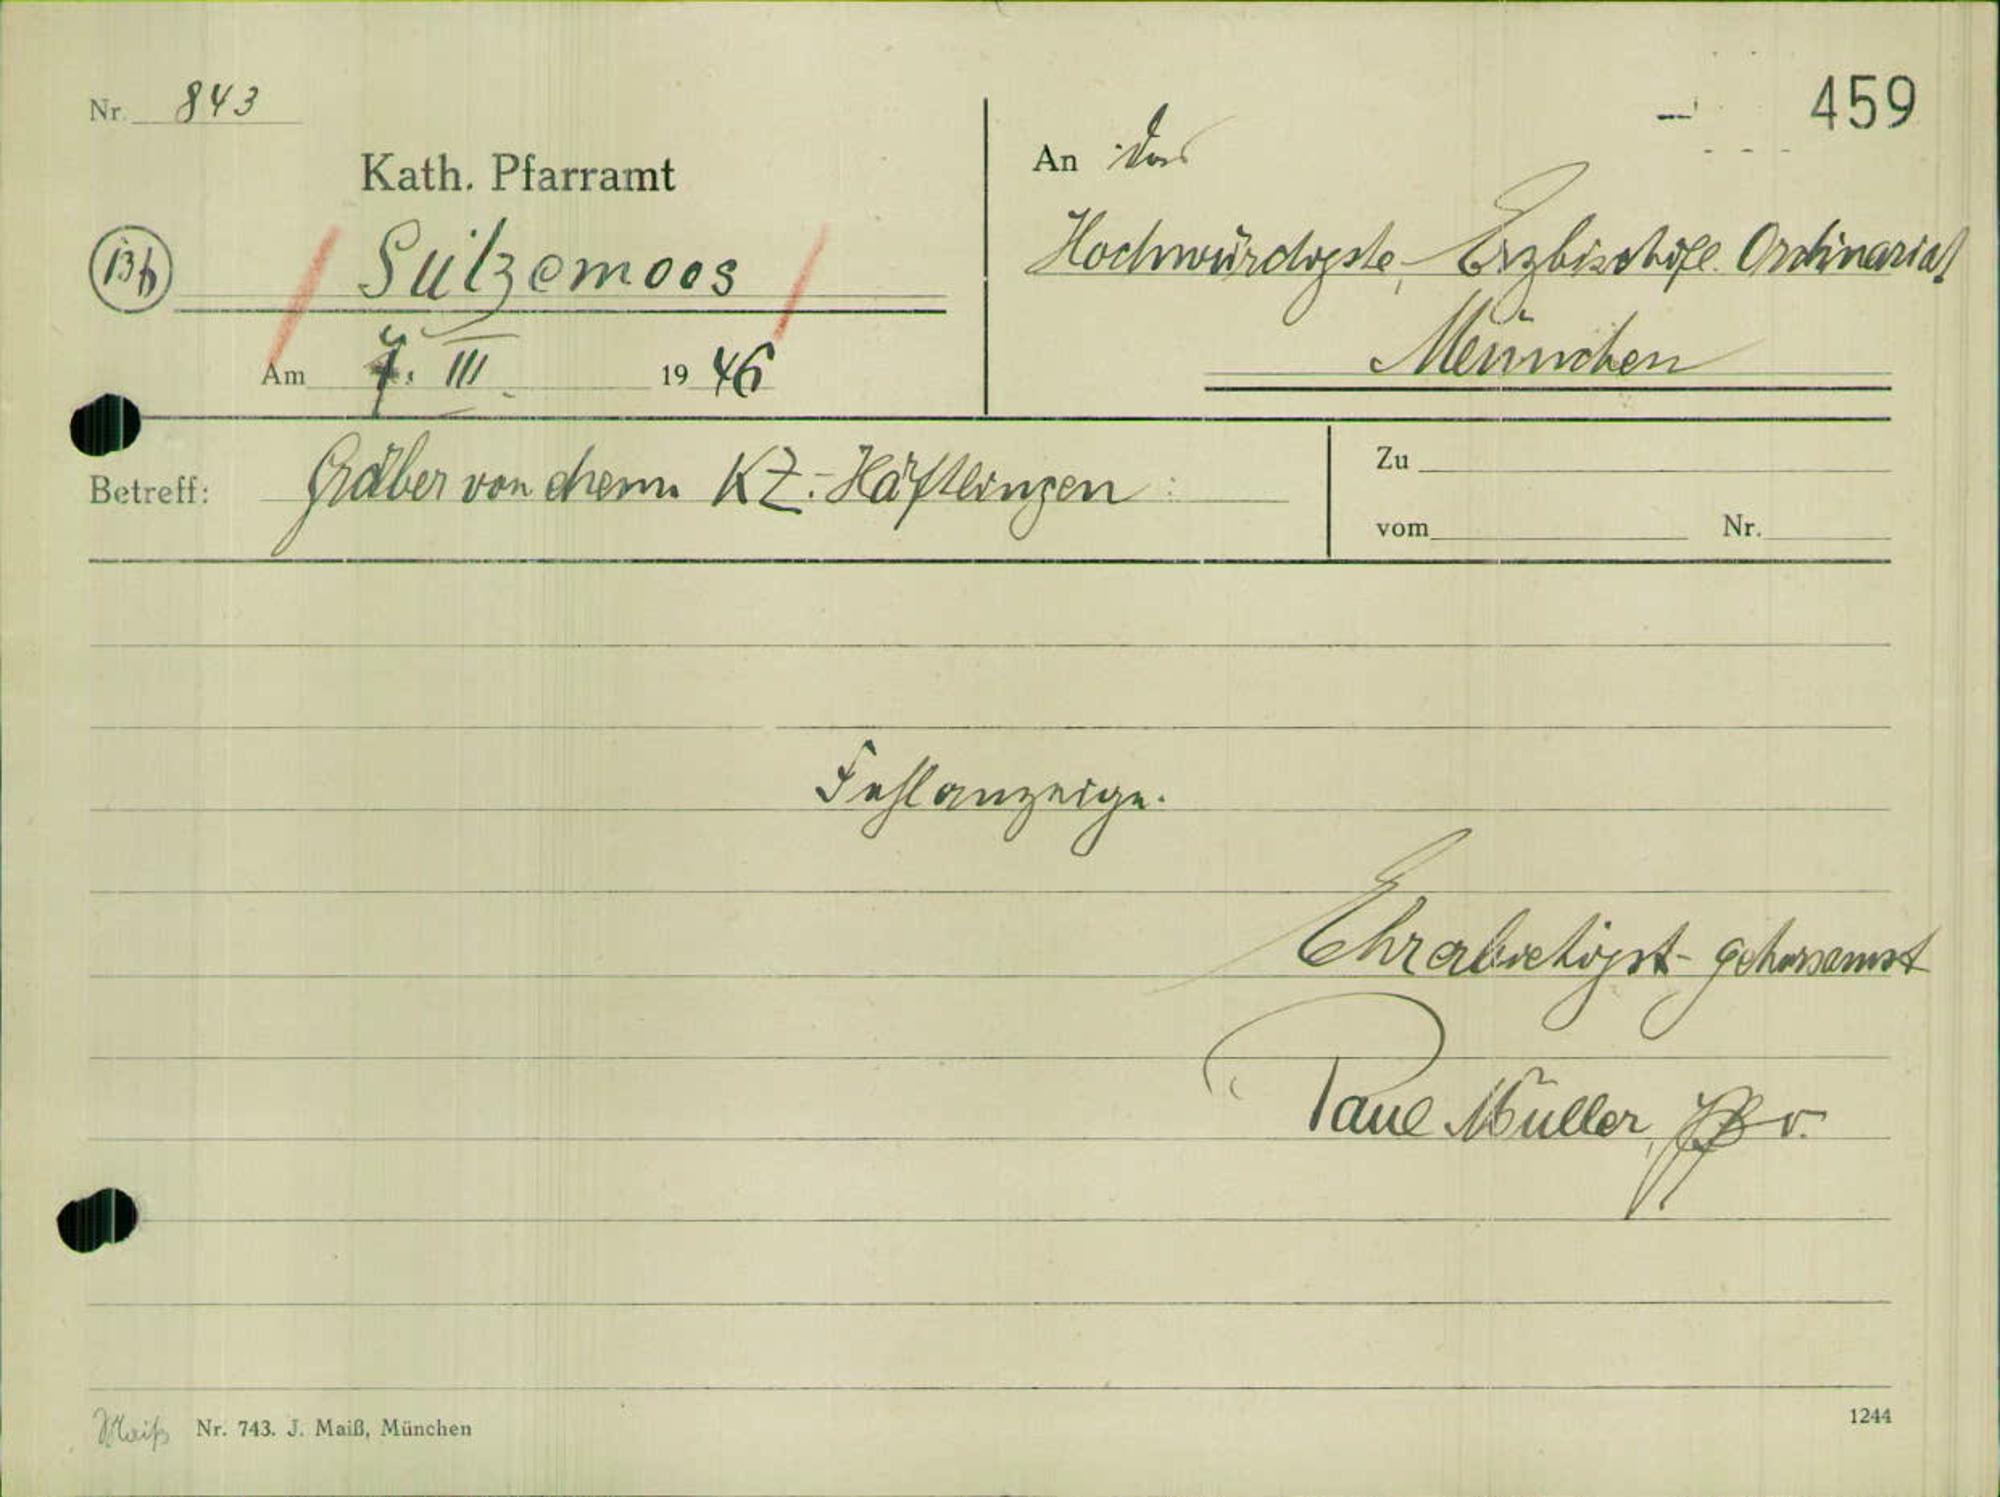 459
Nr. 843
Kath. Pfarramt
13b
Sulzemoos
Am 7. III. 1946
An das
Hochwürdigste Erzbischöfl. Ordinariat
München
Betreff: Gräber von ehem. KZ.-Häftlingen:
Zu
vom Nr.
Fehlanzeige.
Ehrerbietigst gehorsamst
Paul Müller,
Maiß Nr. 743. J. Maiß, München
1244